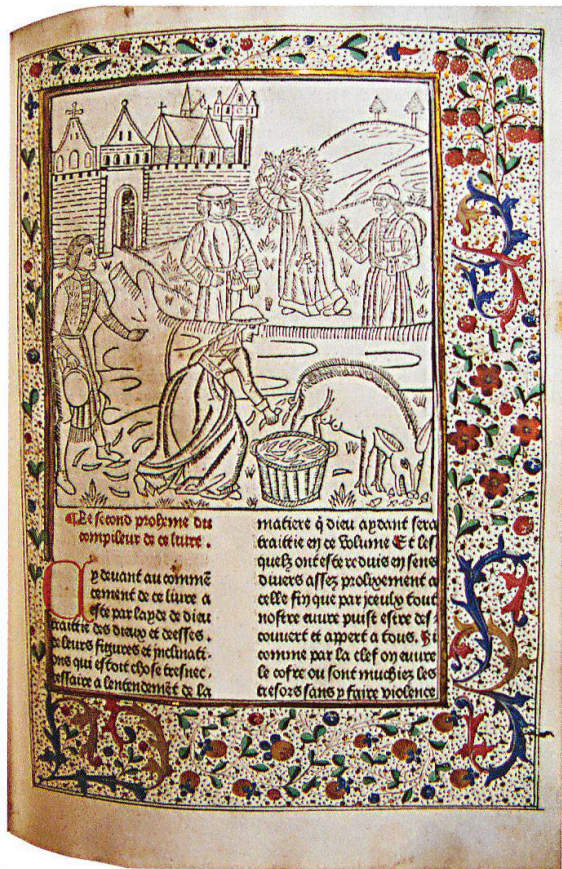 ¶Le second prohemme du
compileur de ce livre .
Cy devant au commē
cement de ce livre a
este par layde de dieu
traittie des dieux et deesses .
de leurs figures et inclinati
ons qui estoit chose tresnec .
essaire a lentendemēt de la
matiere q̄ dieu aydant sera
traittie en ce Volume Et les
quelz ont este reduis en sens
divers assez prolixement a
celle fin que par jceulx tout
nostre euure puist estre des
couvert et appert a tous . Si
comme par la clef on euure
le cofre ou sont muchiez les
tresors sans y faire violence